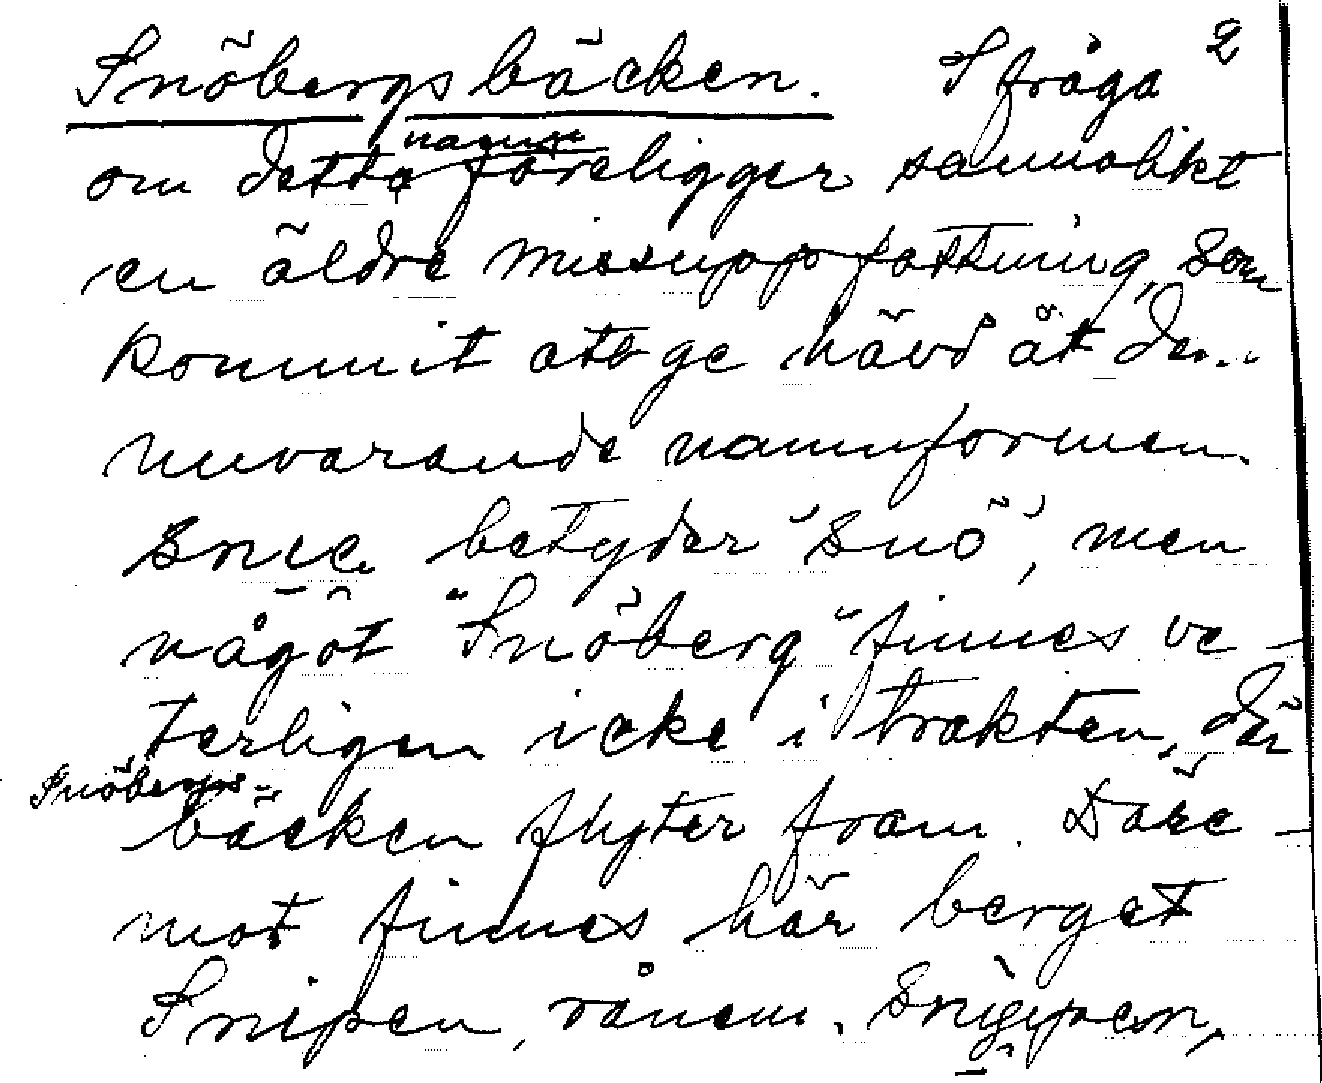 Snöbergsbäcken. I fråga 2
namn
om detta föreligger sannolikt
en äldre missuppfattning, som
kommit att ge hävd åt den
nuvarande namnformen.
snie betyder "snö", men
något "Snöberg" finnes ve-
terligen icke i trakten, där
Snöbergs-
bäcken flyter fram. Däre-
mot finnes här berget
Snipen, vånem.